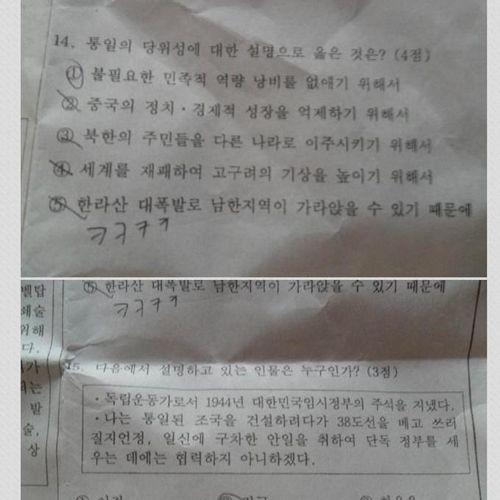 14. 통일의 당위성에 대한 설명으로 옳은 것은? (4점)
① 불필요한 민족적 역량 낭비를 없애기 위해서
② 중국의 정치·경제적 성장을 억제하기 위해서
③ 북한의 주민들을 다른 나라로 이주시키기 위해서
④ 세계를 재패하여 고구려의 기상을 높이기 위해서
⑤ 한라산 대폭발로 남한지역이 가라앉을 수 있기 때문에
ㅋㅋㅋㅋ
⑤ 한라산 대폭발로 남한지역이 가라앉을 수 있기 때문에
ㅋㅋㅋㅋ
15. 다음에서 설명하고 있는 인물은 누구인가? (3점)
· 독립운동가로서 1944년 대한민국임시정부의 주석을 지냈다.
· 나는 통일된 조국을 건설하려다가 38도선을 베고 쓰러
질지언정, 일신에 구차한 안일을 취하여 단독 정부를 세
우는 데에는 협력하지 아니하겠다.
벨탑
예술
위해
다.
가
는
발
술,
상